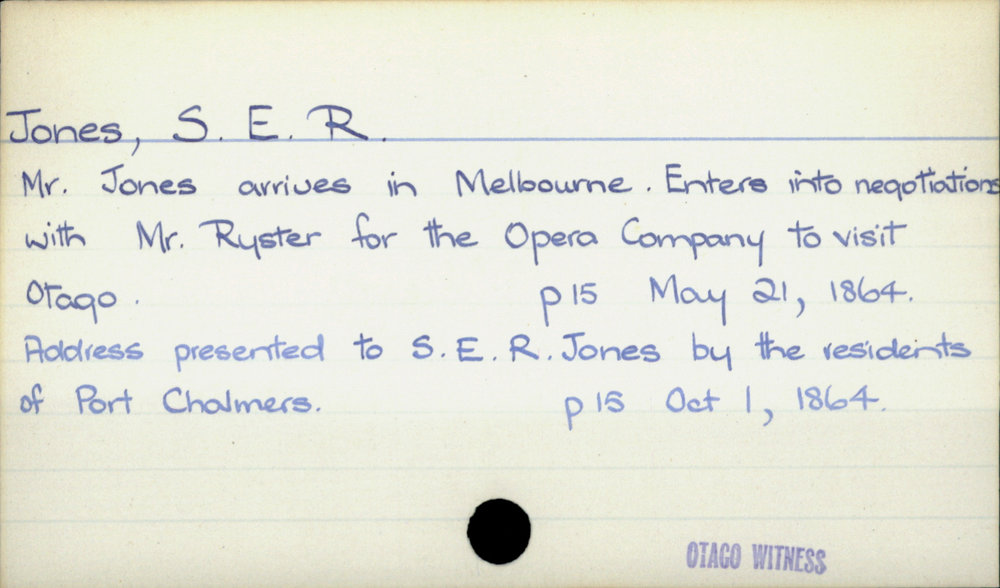 Jones, S. E. R.
Mr. Jones arrives in Melbourne. Enters into negotiations
with Mr. Ryster for the Opera Company to visit
Otago. p15 May 21, 1864.
Address presented to S.E.R. Jones by the residents
of Port Chalmers. p15 Oct 1, 1864.
OTAGO WITNESS